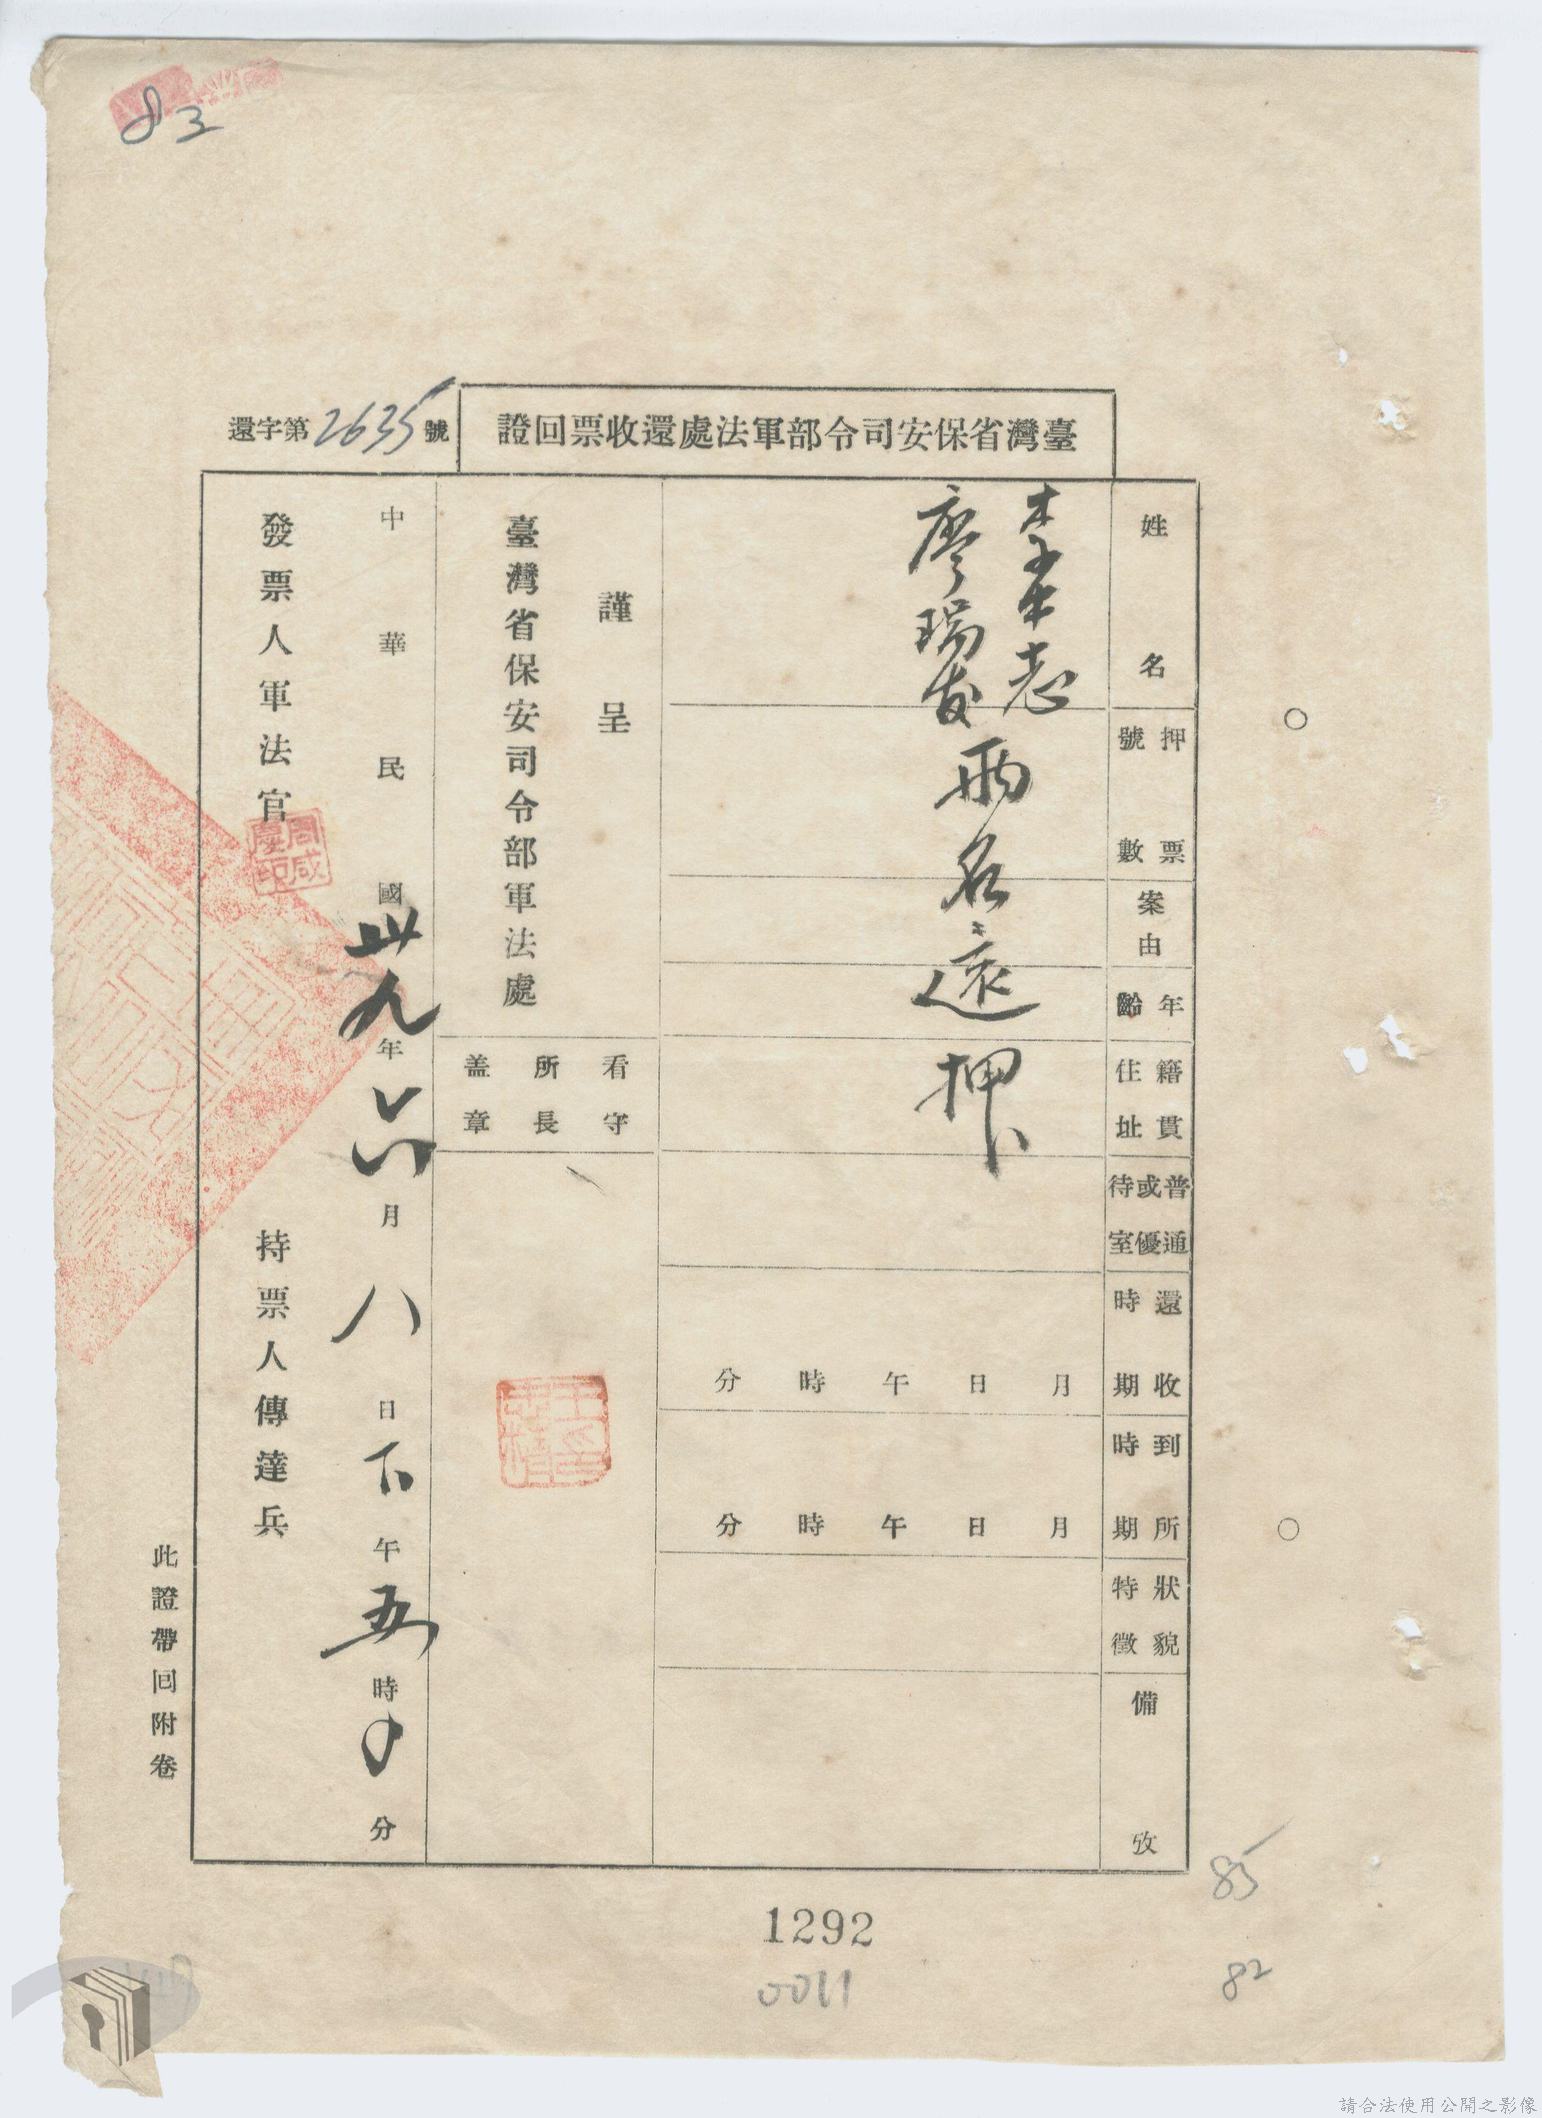 83
臺灣省保安司令部軍法處還收票回證
還字第2635號
姓名
押票號數
案由
年齡
籍貫住址
普通或優待室
還收時期
到所時期
狀貌特徵
備攷
李水志
廖瑞发
兩名還押
月日午時分
月日午時分
謹呈
臺灣省保安司令部軍法處
看守所長盖章
中華民國卅九年六月八日下午五時0分
發票人軍法官
周咸慶印
持票人傳達兵
此證帶回附卷
85
82
1292
0011
請合法使用公開之影像